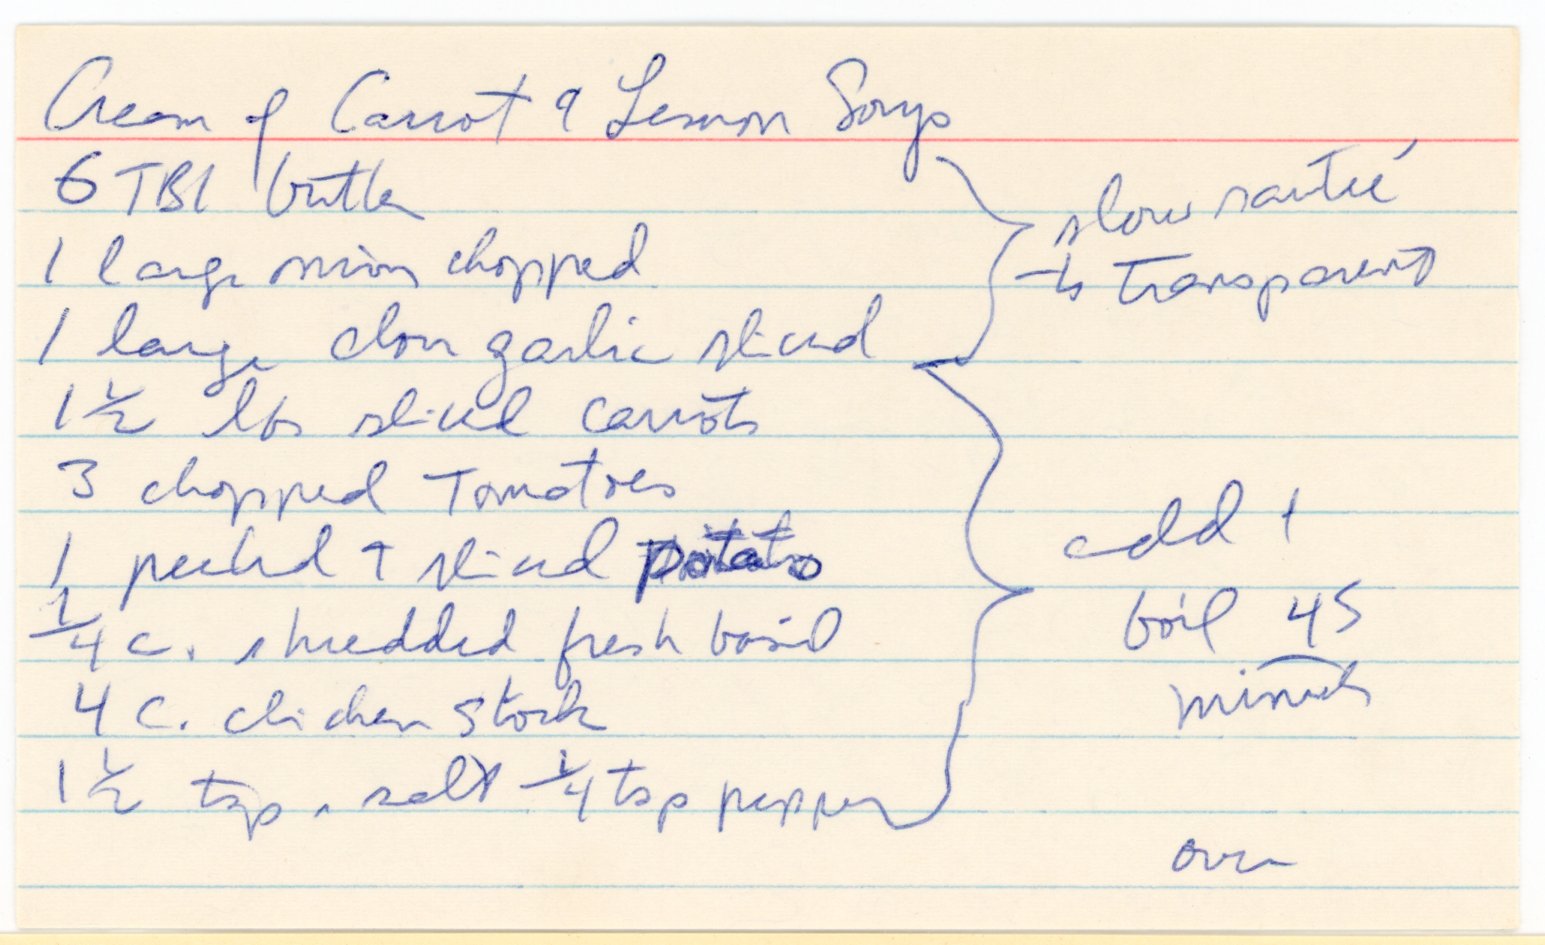 Cream of Carrot & Lemon Soup
6 TBL butter
1 large onion chopped
1 large clove garlic sliced
slow sauteé
to transparent
1 1/2 lbs sliced carrots
3 chopped Tomatoes
1 peeled + sliced potato
1/4 c. shredded fresh basil
4 c. chicken stock
1 1/2 tsp. salt 1/4 tsp pepper
add +
boil 45
minutes
over